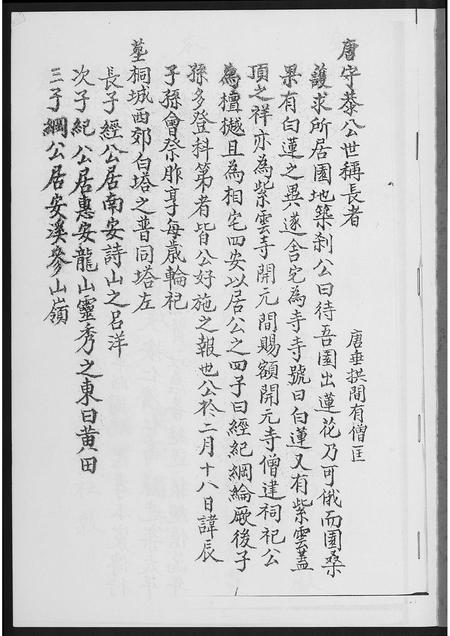 唐守恭公世稱長者
唐垂拱間有僧匡
護求所居園地築剎公曰待吾園出蓮花乃可俄而園桑
果有白蓮之異遂舍宅為寺寺號曰白蓮又有紫雲蓋
頂之祥亦為紫雲寺開元間賜額開元寺僧建祠祀公
為檀樾且為相宅四安以居公之四子曰經紀綱綸厥後子
孫多登科第者皆公好施之報也公於二月十八日諱辰
子孫會祭胙享每歲輪祀
墓桐城西郊白塔之普同塔左
長子經公居南安詩山之呂洋
次子紀公居惠安龍山靈秀之東曰黃田
三子綱公居安溪參山嶺